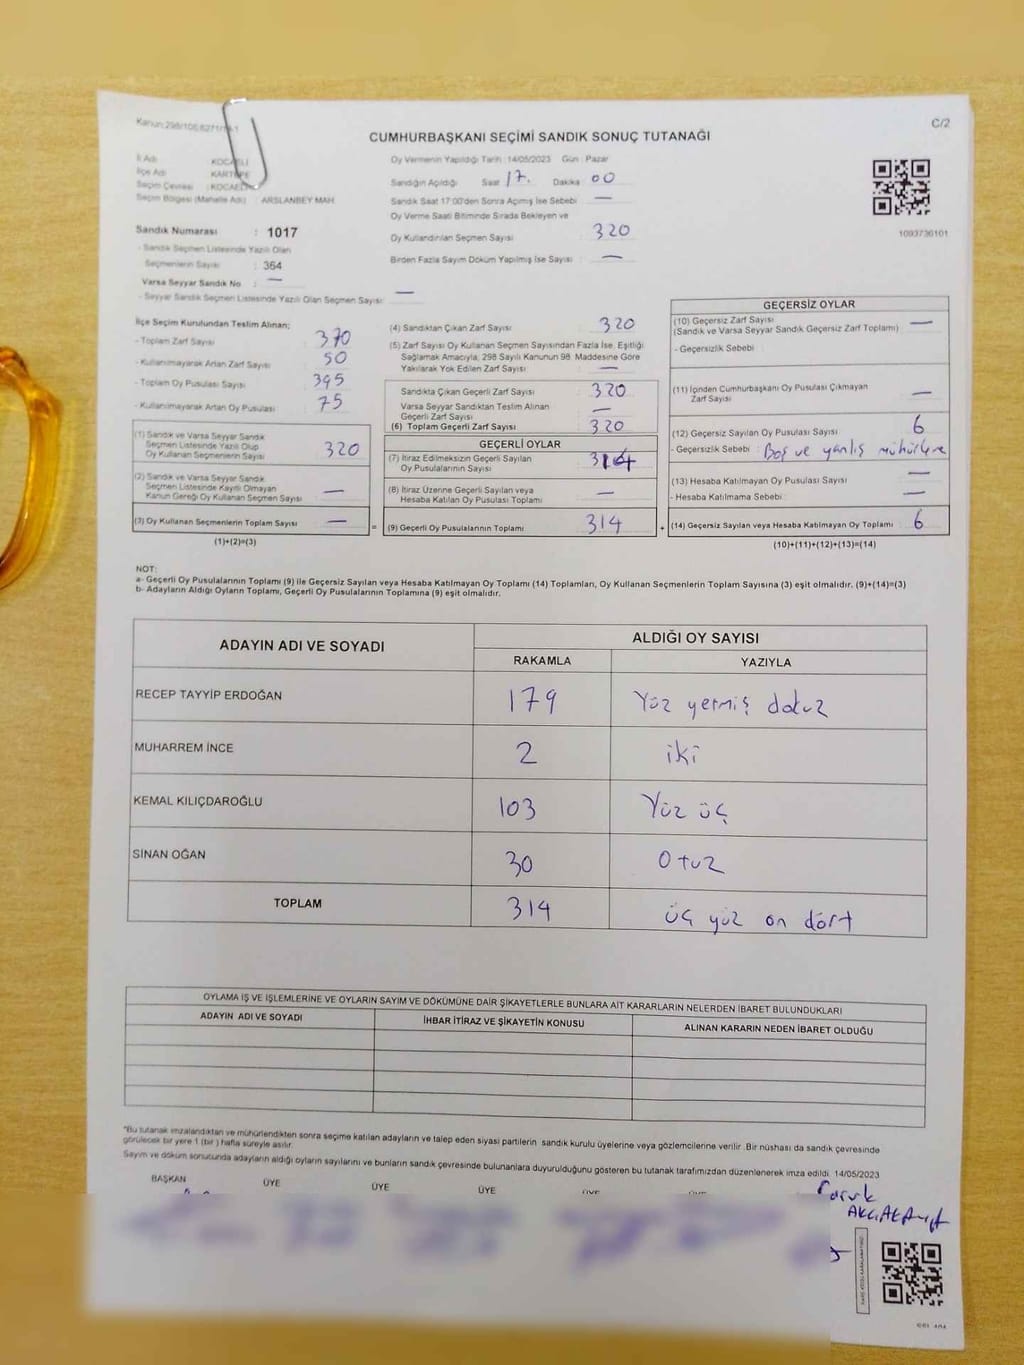 C/2
CUMHURBAŞKANI SEÇİMİ SANDIK SONUÇ TUTANAĞI
İl Adı KOCAELİ
İlçe Adı KARTEPE
Seçim Çevresi : KOCAELİ
Seçim Bölgesi (Mahalle Adı) : ARSLANBEY MAH
Sandık Numarası : 1017
- Sandık Seçmen Listesinde Yazılı Olan
Seçmenlerin Sayısı : 364
Varsa Seyyar Sandık No : —
- Seyyar Sandık Seçmen Listesinde Yazılı Olan Seçmen Sayısı : —
Oy Vermenin Yapıldığı Tarih : 14/05/2023 Gün : Pazar
Sandığın Açıldığı Saat 17. Dakika 00
Sandık Saat 17:00'den Sonra Açımış İse Sebebi : —
Oy Verme Saati Bitiminde Sırada Bekleyen ve
Oy Kullandırılan Seçmen Sayısı : 320
Birden Fazla Sayım Döküm Yapılmış İse Sayısı : —
1093736101
İlçe Seçim Kurulundan Teslim Alınan;
- Toplam Zarf Sayısı : 370
- Kullanılmayarak Artan Zarf Sayısı : 50
- Toplam Oy Pusulası Sayısı : 395
- Kullanılmayarak Artan Oy Pusulası : 75
(1) Sandık ve Varsa Seyyar Sandık
Seçmen Listesinde Yazılı Olup
Oy Kullanan Seçmenlerin Sayısı : 320
(2) Sandık ve Varsa Seyyar Sandık
Seçmen Listesinde Kayıtlı Olmayan
Kanun Gereği Oy Kullanan Seçmen Sayısı : —
(3) Oy Kullanan Seçmenlerin Toplam Sayısı : —
(1)+(2)=(3)
(4) Sandıktan Çıkan Zarf Sayısı : 320
(5) Zarf Sayısı Oy Kullanan Seçmen Sayısından Fazla İse, Eşitliği
Sağlamak Amacıyla, 298 Sayılı Kanunun 98. Maddesine Göre
Yakılarak Yok Edilen Zarf Sayısı : —
Sandıkta Çıkan Geçerli Zarf Sayısı : 320
Varsa Seyyar Sandıktan Teslim Alınan
Geçerli Zarf Sayısı : —
(6) Toplam Geçerli Zarf Sayısı : 320
GEÇERLİ OYLAR
(7) İtiraz Edilmeksizin Geçerli Sayılan
Oy Pusulalarının Sayısı : 314
(8) İtiraz Üzerine Geçerli Sayılan veya
Hesaba Katılan Oy Pusulası Toplamı : —
= (9) Geçerli Oy Pusulalarının Toplamı : 314
GEÇERSİZ OYLAR
(10) Geçersiz Zarf Sayısı : —
(Sandık ve Varsa Seyyar Sandık Geçersiz Zarf Toplamı)
- Geçersizlik Sebebi :
(11) İçinden Cumhurbaşkanı Oy Pusulası Çıkmayan
Zarf Sayısı : —
(12) Geçersiz Sayılan Oy Pusulası Sayısı : 6
- Geçersizlik Sebebi : Boş ve yanlış mühürleme
(13) Hesaba Katılmayan Oy Pusulası Sayısı : —
- Hesaba Katılmama Sebebi : —
+ (14) Geçersiz Sayılan veya Hesaba Katılmayan Oy Toplamı : 6
(10)+(11)+(12)+(13)=(14)
NOT:
a- Geçerli Oy Pusulalarının Toplamı (9) ile Geçersiz Sayılan veya Hesaba Katılmayan Oy Toplamı (14) Toplamları, Oy Kullanan Seçmenlerin Toplam Sayısına (3) eşit olmalıdır. (9)+(14)=(3)
b- Adayların Aldığı Oyların Toplamı, Geçerli Oy Pusulalarının Toplamına (9) eşit olmalıdır.
ADAYIN ADI VE SOYADI ALDIĞI OY SAYISI
RAKAMLA YAZIYLA
RECEP TAYYİP ERDOĞAN 179 Yüz yetmiş dokuz
MUHARREM İNCE 2 iki
KEMAL KILIÇDAROĞLU 103 Yüz üç
SİNAN OĞAN 30 Otuz
TOPLAM 314 üç yüz on dört
OYLAMA İŞ VE İŞLEMLERİNE VE OYLARIN SAYIM VE DÖKÜMÜNE DAİR ŞİKAYETLERLE BUNLARA AİT KARARLARIN NELERDEN İBARET BULUNDUKLARI
ADAYIN ADI VE SOYADI İHBAR İTİRAZ VE ŞİKAYETİN KONUSU ALINAN KARARIN NEDEN İBARET OLDUĞU
*Bu tutanak imzalandıktan ve mühürlendikten sonra seçime katılan adayların ve talep eden siyasi partilerin sandık kurulu üyelerine veya gözlemcilerine verilir. Bir nüshası da sandık çevresinde
görülecek bir yere 1 (bir) hafta süreyle asılır.
Sayım ve döküm sonucunda adayların aldığı oyların sayılarını ve bunların sandık çevresinde bulunanlara duyurulduğunu gösteren bu tutanak tarafımızdan düzenlenerek imza edildi. 14/05/2023
BAŞKAN ÜYE ÜYE ÜYE ÜYE